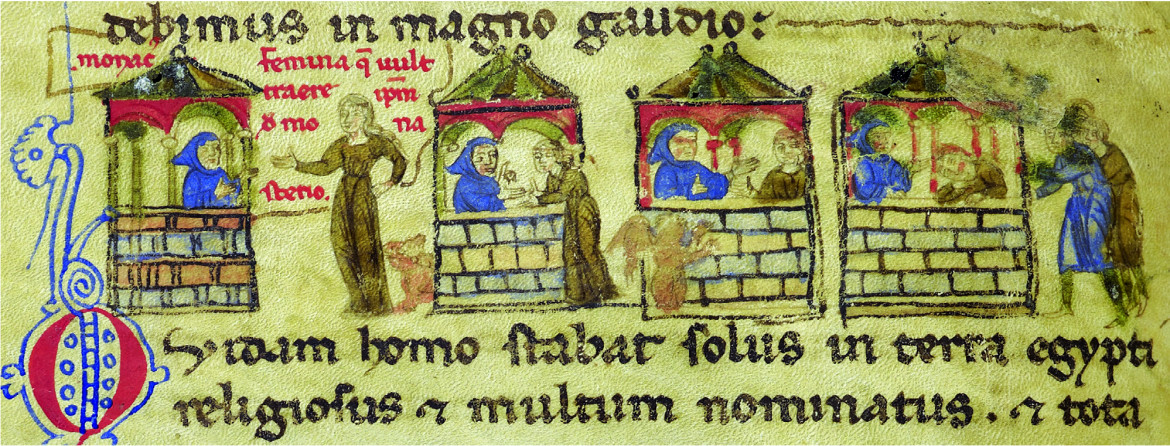 debimus in magno gaudio:
monac̄
femina q̄ uult
traere ip̄m
d̄ mo na
sterio.
Quidam homo stabat solus in terra egypti
religiosus ⁊ multum nominatus. ⁊ tota